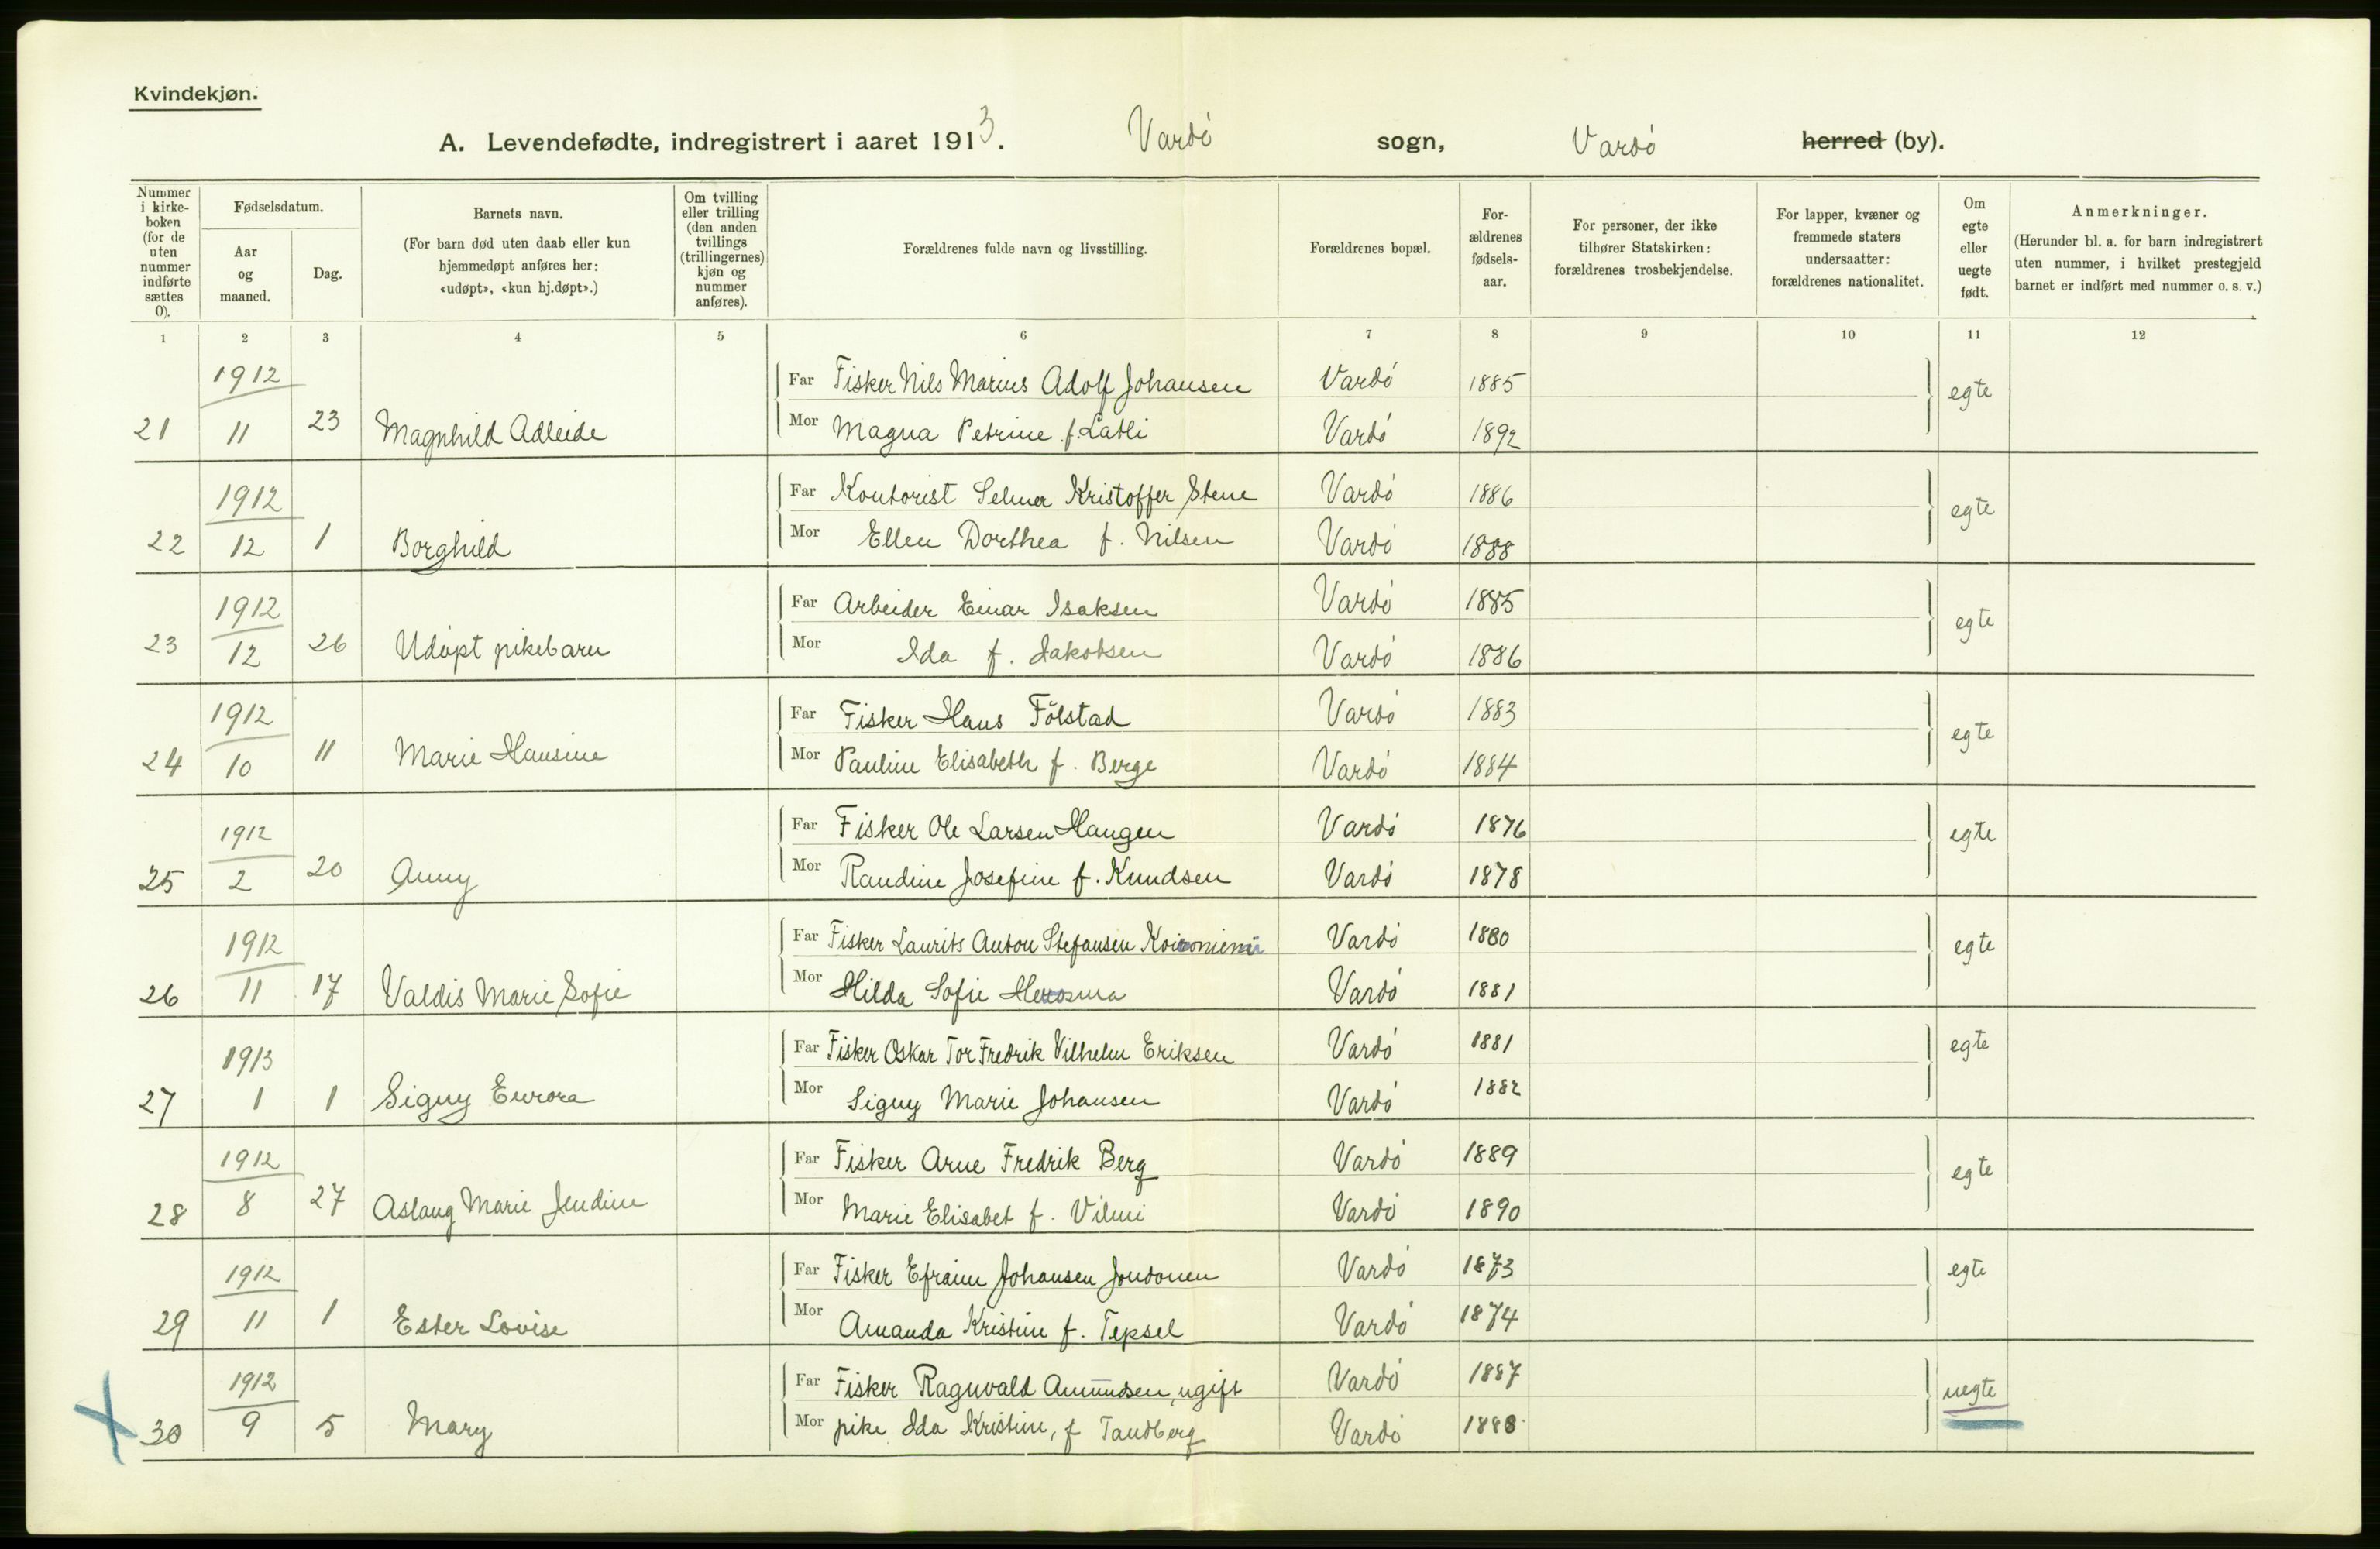 Kvindekjøn.
A. Levendefødte, indregistrert i aaret 1913. Vardö sogn, Vardö herred (by).
Nummer i kirke-boken (for de uten nummer indførte sættes 0).
Fødselsdatum.
Aar og maaned.
Dag.
Barnets navn.
(For barn død uten daab eller kun hjemmedøpt anføres her: «udøpt», «kun hj.døpt».)
Om tvilling eller trilling (den anden tvillings (trillingernes) kjøn og nummer anføres).
Forældrenes fulde navn og livsstilling.
Forældrenes bopæl.
For-ældrenes fødsels-aar.
For personer, der ikke tilhører Statskirken: forældrenes trosbekjendelse.
For lapper, kvæner og fremmede staters undersaatter: forældrenes nationalitet.
Om egte eller uegte født.
Anmerkninger.
(Herunder bl. a. for barn indregistrert uten nummer, i hvilket prestegjeld barnet er indført med nummer o. s. v.)
1 2 3 4 5 6 7 8 9 10 11 12
1912 Far Fisker Nils Marius Adolf Johansen Vardö 1885 egte
21 11 23 Magnhild Adleide Mor Magna Petrine f. Latli Vardö 1892
1912 Far Kontorist Selmer Kristoffer Stene Vardö 1886 egte
22 12 1 Borghild Mor Ellen Dorthea f. Nilsen Vardö 1888
1912 Far Arbeider Einar Isaksen Vardö 1885 egte
23 12 26 Udöpt pikebarn Mor Ida f. Jakobsen Vardö 1886
1912 Far Fisker Hans Fölstad Vardö 1883 egte
24 10 11 Marie Hansine Mor Pauline Elisabeth f. Berge Vardö 1884
1912 Far Fisker Ole Larsen Haugen Vardö 1876 egte
25 2 20 Anny Mor Randine Josefine f. Knudsen Vardö 1878
1912 Far Fisker Laurits Anton Stefansen Vardö 1880 egte
26 11 17 Valdis Marie Sofie Mor Hilda Sofie Vardö 1881
1913 Far Fisker Oskar Tor Fredrik Vilhelm Eriksen Vardö 1881 egte
27 1 1 Signy Eurora Mor Signy Marie Johansen Vardö 1882
1912 Far Fisker Arne Fredrik Berg Vardö 1889 egte
28 8 27 Aslaug Marie Jendine Mor Marie Elisabet f. Vilmi Vardö 1890
1912 Far Fisker Efraim Johansen Vardö 1873 egte
29 11 1 Ester Lovise Mor Amanda Kristine f. Tepsel Vardö 1874
1912 Far Fisker Ragnvald Amundsen, ugift Vardö 1887 uegte
30 9 5 Mary Mor pike Ida Kristine, f Tandberg Vardö 1888